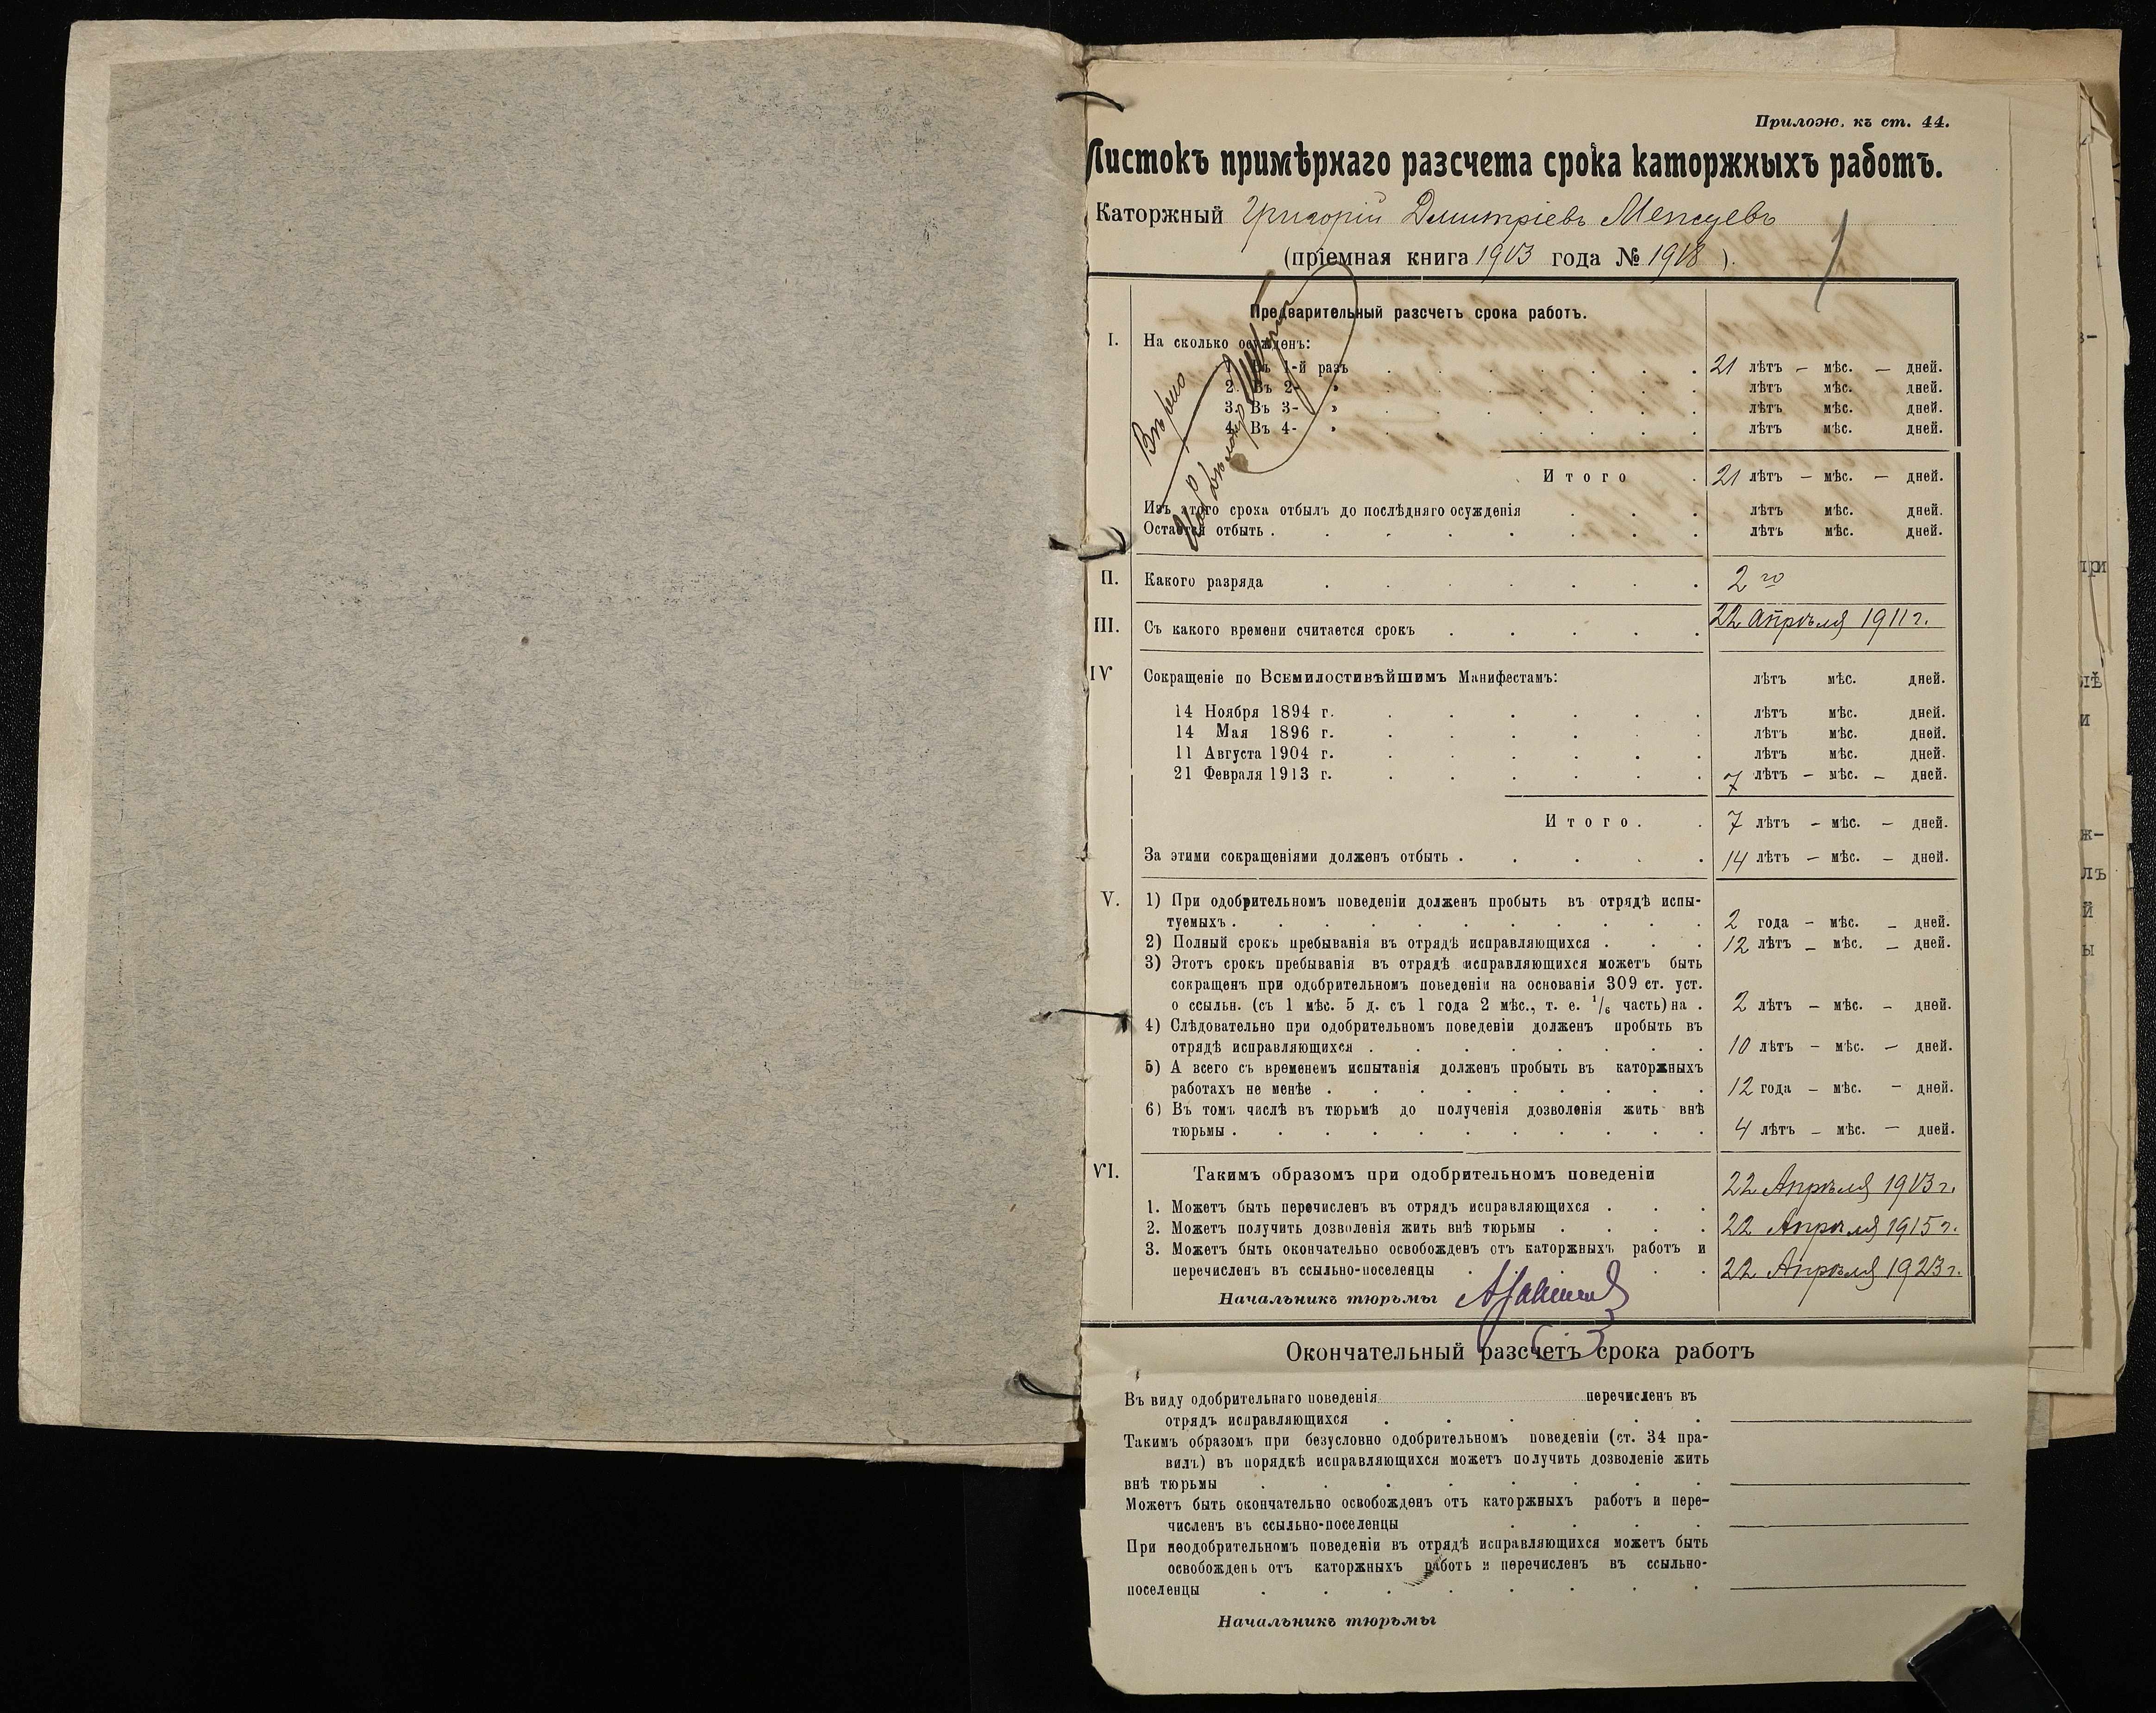 Прилож. къ ст. 44.
Листокъ примѣрнаго разсчета срока каторжныхъ работъ.
Каторжный Григорій Дмитріевъ
(пріемная книга 1913 года № 1918 ).
Предварительный разсчетъ срока работъ.
I. На сколько осужденъ:
1. Въ 1-й разъ 21 лѣтъ – мѣс. – дней.
2. Въ 2- » лѣтъ мѣс. дней.
3. Въ 3- » лѣтъ мѣс. дней.
4. Въ 4- » лѣтъ мѣс. дней.
Вѣрно
Итого 21 лѣтъ – мѣс. – дней.
Изъ этого срока отбылъ до послѣдняго осужденія лѣтъ мѣс. дней.
Остается отбыть . лѣтъ мѣс. дней.
II. Какого разряда 2 го
III. Съ какого времени считается срокъ 22 Апрѣля 1911 г.
IV Сокращеніе по Всемилостивѣйшимъ Манифестамъ: лѣтъ мѣс. дней.
14 Ноября 1894 г. лѣтъ мѣс. дней.
14 Мая 1896 г. лѣтъ мѣс. дней.
11 Августа 1904 г. лѣтъ мѣс. дней.
21 Февраля 1913 г. 7 лѣтъ – мѣс. – дней.
Итого. 7 лѣтъ – мѣс. – дней.
За этими сокращеніями долженъ отбыть . 14 лѣтъ – мѣс. – дней.
V. 1) При одобрительномъ поведеніи долженъ пробыть въ отрядѣ испы-
туемыхъ . 2 года – мѣс. – дней.
2) Полный срокъ пребыванія въ отрядѣ исправляющихся . 12 лѣтъ – мѣс. – дней.
3) Этотъ срокъ пребыванія въ отрядѣ исправляющихся можетъ быть
сокращенъ при одобрительномъ поведеніи на основаніи 309 ст. уст.
о ссыльн. (съ 1 мѣс. 5 д. съ 1 года 2 мѣс., т. е. 1/6 часть) на . 2 лѣтъ – мѣс. – дней.
4) Слѣдовательно при одобрительномъ поведеніи долженъ пробыть въ
отрядѣ исправляющихся . 10 лѣтъ – мѣс. – дней.
5) А всего съ временемъ испытанія долженъ пробыть въ каторжныхъ
работахъ не менѣе . 12 года – мѣс. – дней.
6) Въ томъ числѣ въ тюрьмѣ до полученія дозволенія жить внѣ
тюрьмы . 4 лѣтъ – мѣс. – дней.
VI. Такимъ образомъ при одобрительномъ поведеніи
1. Можетъ быть перечисленъ въ отрядъ исправляющихся . 22 Апрѣля 1913 г.
2. Можетъ получить дозволенія жить внѣ тюрьмы . 22 Апрѣля 1915 г.
3. Можетъ быть окончательно освобожденъ отъ каторжныхъ работъ и
перечисленъ въ ссыльно-поселенцы . 22 Апрѣля 1923 г.
Начальникъ тюрьмы
Окончательный разсчетъ срока работъ
Въ виду одобрительнаго поведенія перечисленъ въ
отрядъ исправляющихся .
Такимъ образомъ при безусловно одобрительномъ поведеніи (ст. 34 пра-
вилъ) въ порядкѣ исправляющихся можетъ получить дозволеніе жить
внѣ тюрьмы .
Можетъ быть окончательно освобожденъ отъ каторжныхъ работъ и пере-
численъ въ ссыльно-поселенцы .
При неодобрительномъ поведеніи въ отрядѣ исправляющихся можетъ быть
освобожденъ отъ каторжныхъ работъ и перечисленъ въ ссыльно-
поселенцы .
Начальникъ тюрьмы